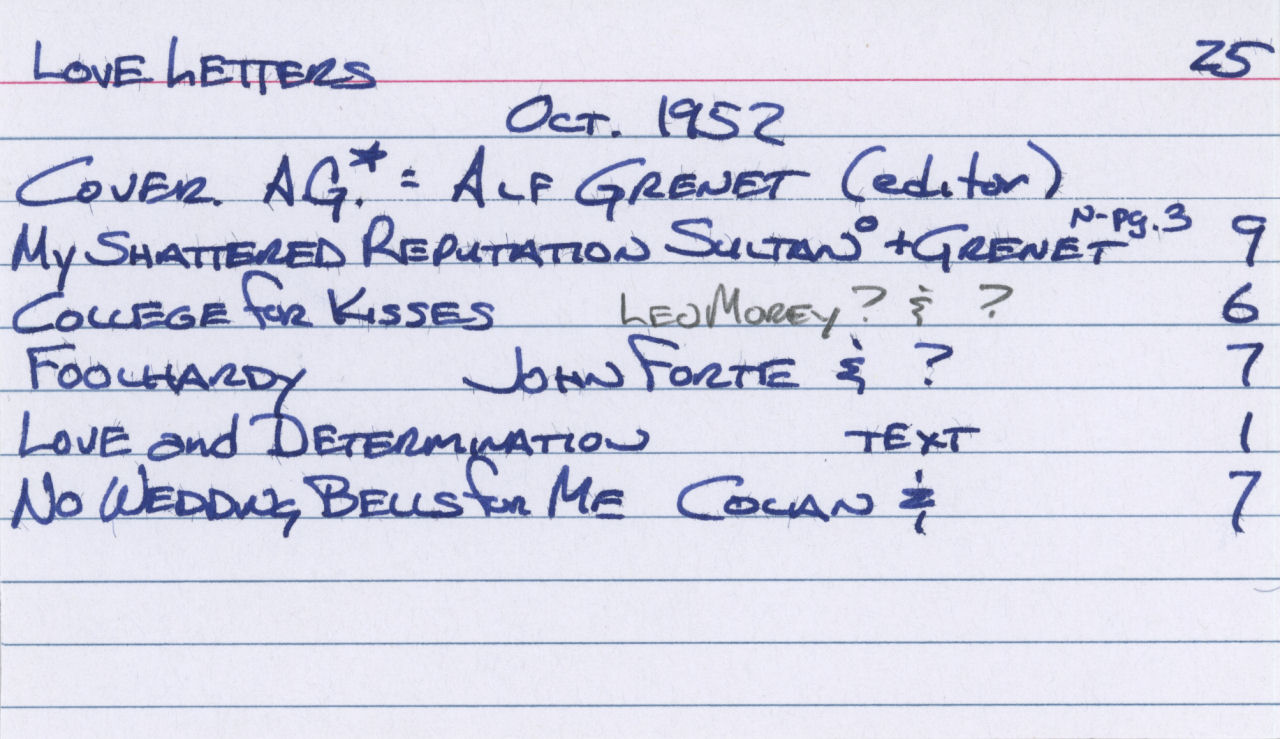 LOVE LETTERS 25
OCT. 1952
COVER. A.G.* = ALF GRENET (editor)
My SHATTERED REPUTATION SULTAN° + GRENET N-pg. 3 9
COLLEGE for KISSES LEO MOREY? & ? 6
FOOLHARDY JOHN FORTE & ? 7
LOVE and DETERMINATION TEXT 1
NO WEDDING BELLS for ME COLAN & 7